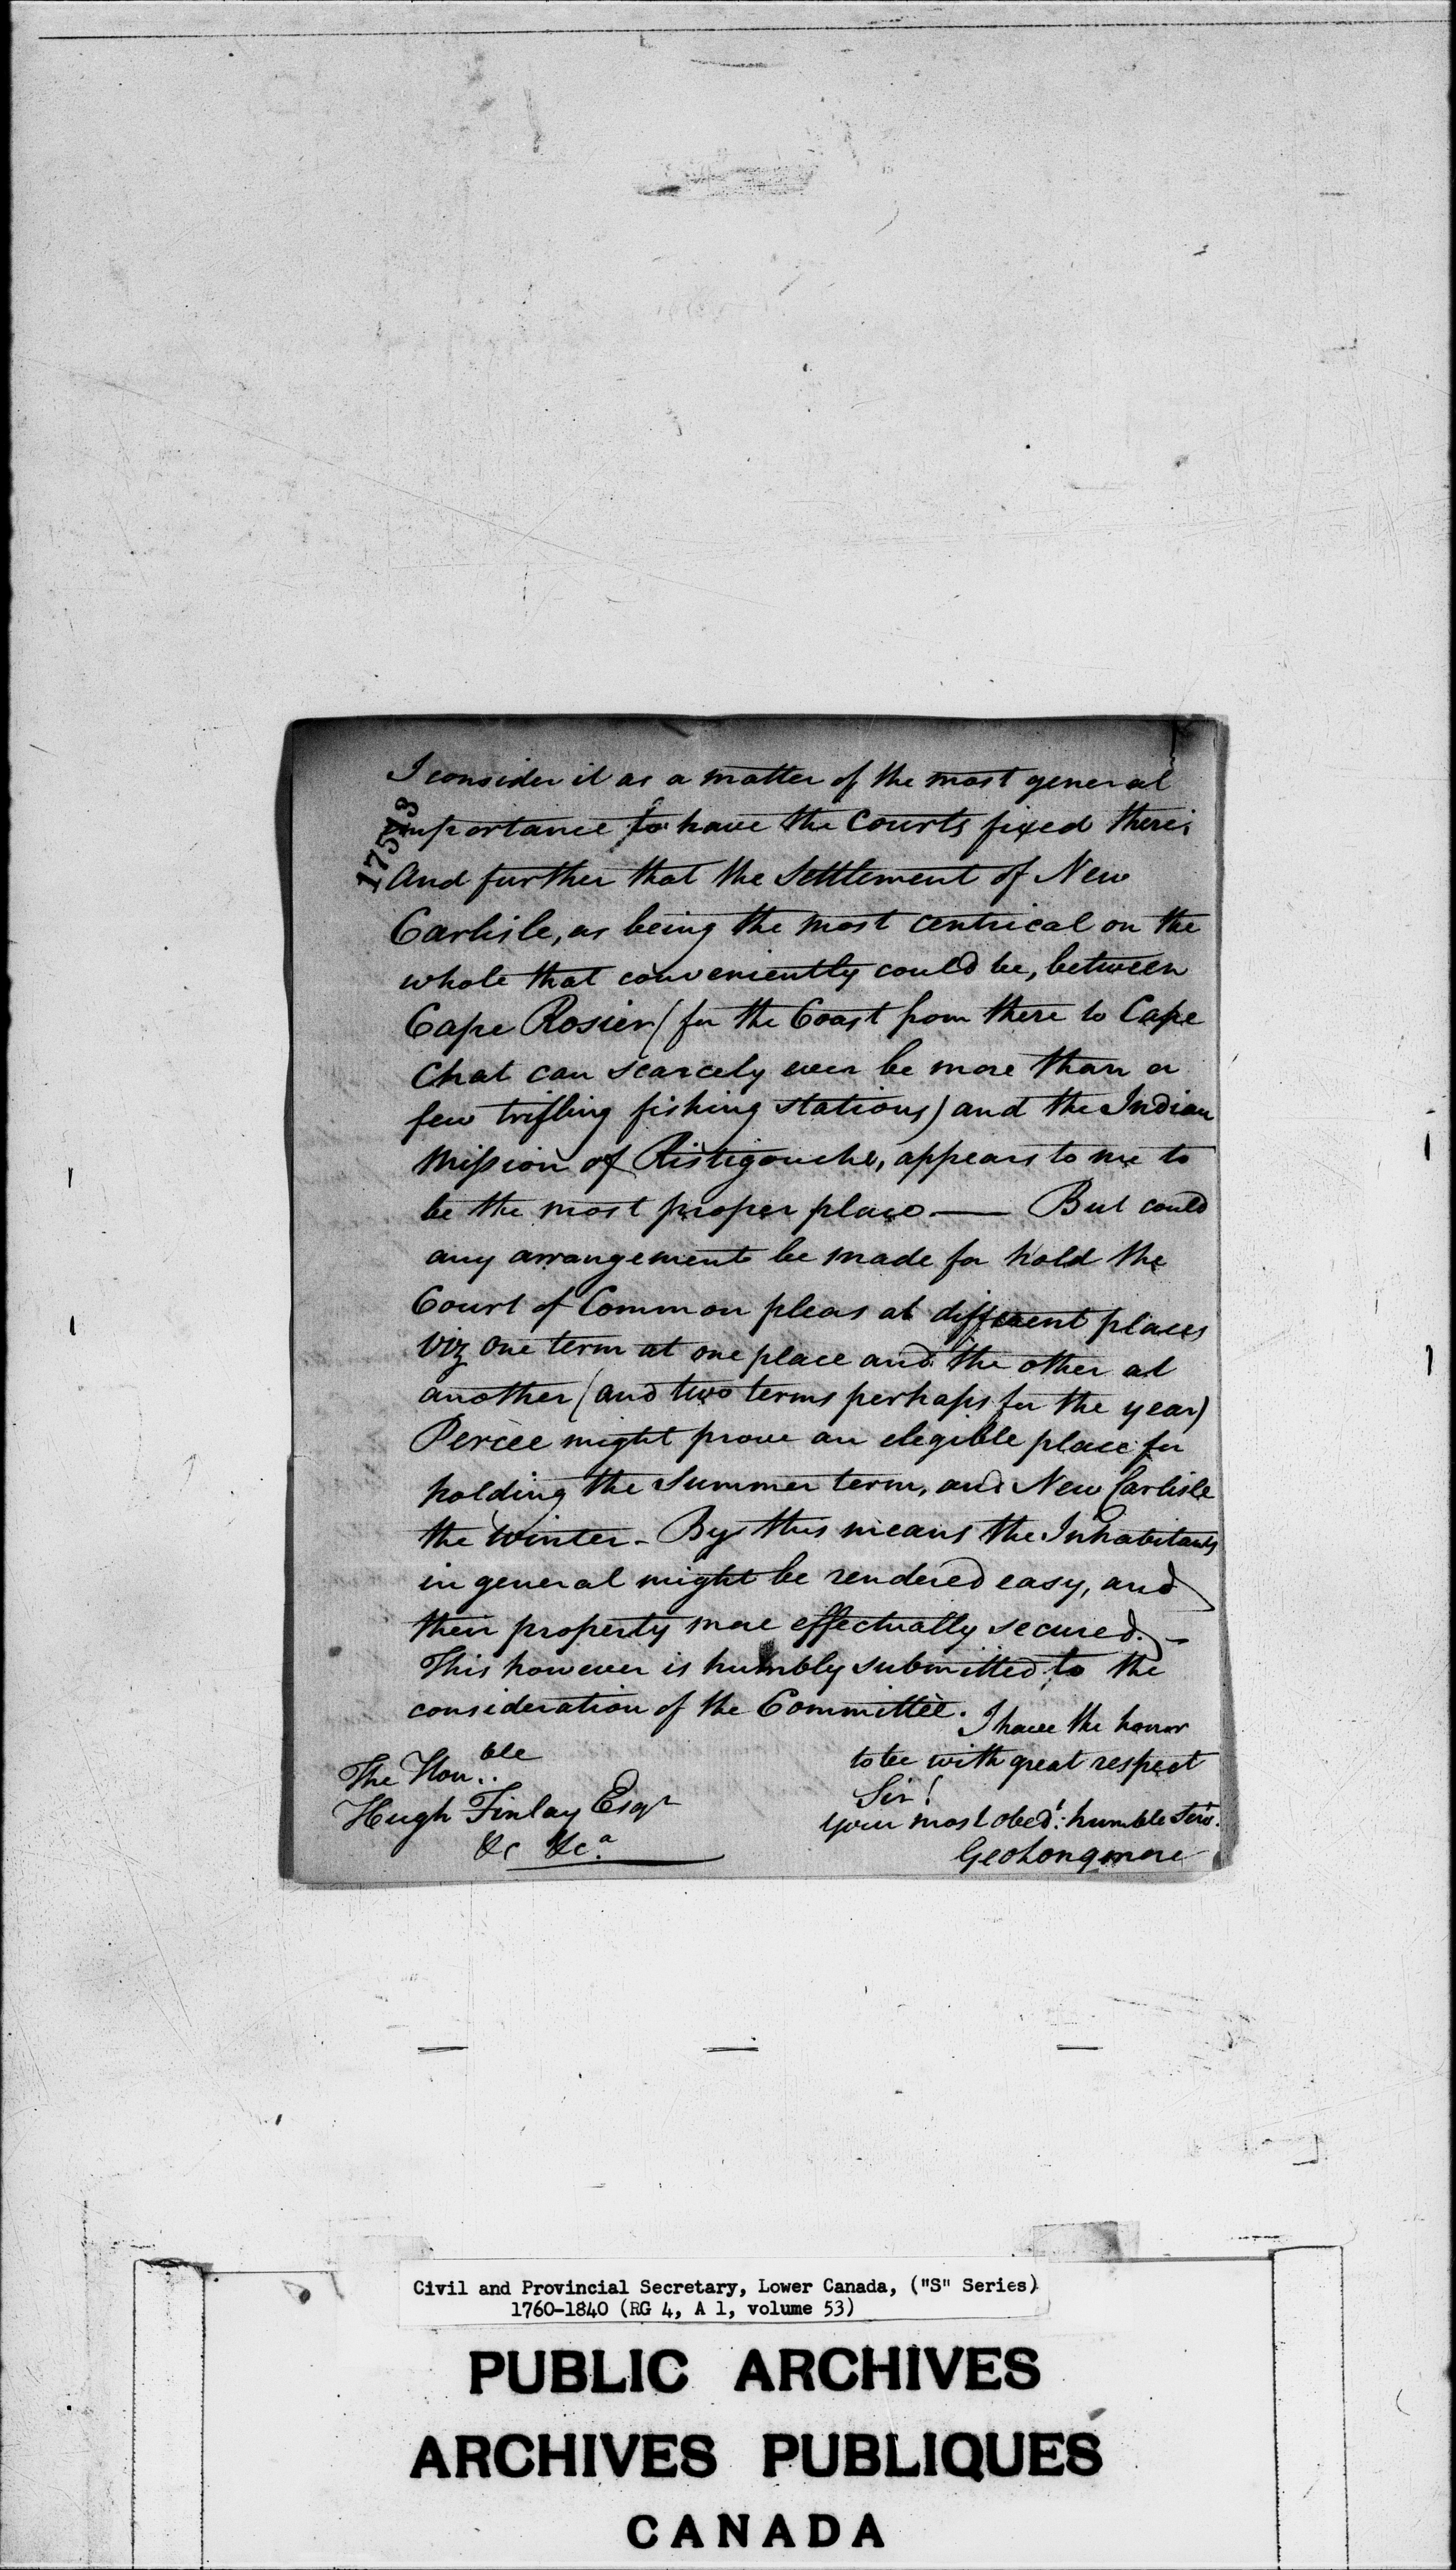 I consider it as a matter of the most general
importance to have the Courts fixed there;
And further that the Settlement of New
Carlisle, as being the most centrical on the
whole that conveniently could be, between
Cape Rosier (for the Coast from there to Cape
Chat can scarcely ever be more than a
few trifling fishing stations) and the Indian
Mission of Ristigouche, appears to me to
be the most proper place — But could
any arrangement be made for hold the
Court of Common pleas at different places
Viz one term at one place and the other at
another (and two terms perhaps for the year)
Percèe might prove an elegible place for
holding the Summer term, and New Carlisle
the winter - By this means the Inhabitants
in general might be rendered easy, and
their property more effectually secured. -
This however is humbly submitted to the
consideration of the Committee.
I have the honor
to be with great respect
Sir!
your most obedt: humble Servt.
Geo Longmore
The Honble
Hugh Finlay Esqr
&c &ca
Civil and Provincial Secretary, Lower Canada, ("S" Series)
1760-1840 (RG 4, A 1, volume 53)
PUBLIC ARCHIVES
ARCHIVES PUBLIQUES
CANADA